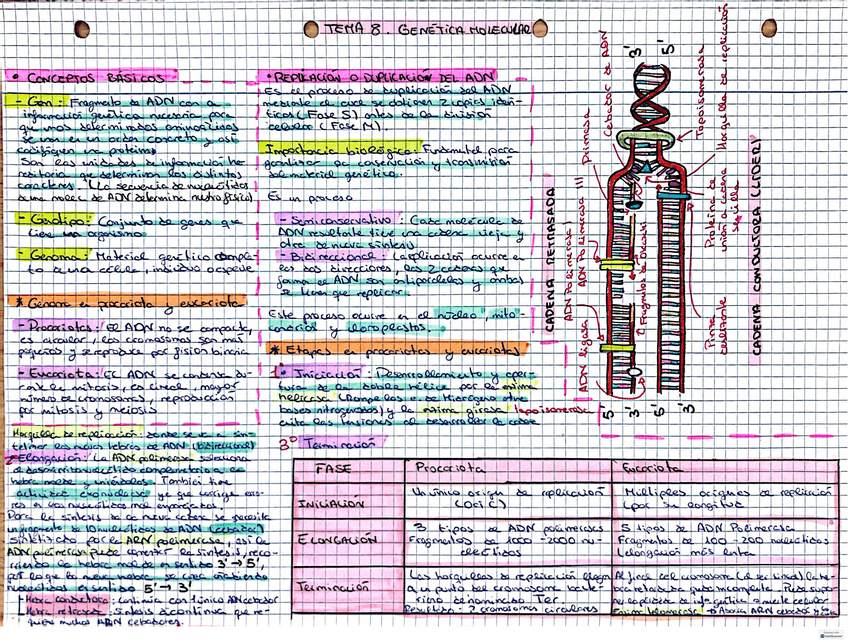 TEMA 8. GENÉTICA MOLECULAR
• CONCEPTOS BÁSICOS
- Gen: Fragmento de ADN con la
información genética necesaria para
que unos determinados aminoácidos
se unan en un orden concreto y así
codifiquen una proteína
Son las unidades de información he
reditaria que determinan los distintos
caracteres. "La secuencia de nucleótidos
- Genotipo: Conjunto de genes que
tiene un organismo
- Genoma: Material genético comple-
to de una célula, individuo o especie
* Genoma en procariota y eucariota
- Procariotas: El ADN no se compacta,
es circular, los cromosomas son más
pequeños y se reproduce por fisión binaria
- Eucariota: El ADN se condensa du-
rante la mitosis, es lineal, mayor
número de cromosomas, reproducción
por mitosis y meiosis
• REPLICACIÓN O DUPLICACIÓN DEL ADN
Es el proceso de duplicación del ADN
mediante el cual se obtienen 2 copias idén-
ticas (Fase S) antes de la división
celular (Fase M).
Importancia biológica: Fundamental para
garantizar la conservación y transmisión
del material genético.
Es un proceso
- Semiconservativo: Cada molécula de
ADN resultante tiene una cadena vieja y
otra de nueva síntesis
- Bidireccional (replicación ocurre en
las dos direcciones, las 2 cadenas que
forman el ADN son antiparalelas y ambas
se tienen que replicar.
Este proceso ocurre en el núcleo, mito-
condria y cloroplastos.
* Etapas en procariotas y eucariotas
1º Iniciación: Desenrollamiento y aper-
tura de la doble hélice por la enzima
helicasa (Rompe los e de hidrógeno entre
bases nitrogenadas) y la enzima girasa topoisomerasa
evita las tensiones al desenrollar la cadena
Horquilla de replicación: donde se va a sin-
tetizar las nuevas hebras de ADN (bidireccional)
2º Elongación: La ADN polimerasa selecciona
el desoxirribonucleótido complementario a la
hebra molde y uniéndolos. También tiene
actividad exonucleasa ya que corrige erro-
res
Para la síntesis de la nueva cadena se necesita
un fragmento de 10 nucleótidos de ARN (cebador)
sintetizado por la ARN polimerasa, así la
ADN polimerasa puede comenzar la síntesis, reco-
rriendo la hebra molde en sentido 3' → 5',
por lo que la nueva hebra se crea añadiendo
nucleótidos en sentido 5' → 3'
- Hebra conductora: continua con 1 único ARN cebador
- Hebra retrasada: síntesis discontinua que re-
quiere muchos ARN cebadores.
3º Terminación
FASE Procariota Eucariota
INICIACIÓN
Un único origen de replicación
(Ori C)
Múltiples orígenes de replicación
(por su longitud)
ELONGACIÓN
3 tipos de ADN polimerasas
Fragmentos de 1000-2000 nu-
cleótidos
5 tipos de ADN Polimerasa
Fragmentos de 100-200 nucleótidos
(elongación más lenta)
Terminación
Las horquillas de replicación llegan
a un punto del cromosoma bacte-
riano denominado Ter.
Resultado = 2 cromosomas circulares
Enzima telomerasa
3'
5'
Cebador de ADN
Primasa
Topoisomerasa
Horquilla de replicación
ADN Polimerasa III
ADN Polimerasa I
Fragmentos de Okazaki
ADN ligasa
Proteína de
unión a cadena
sencilla
Pinza
deslizante
CADENA RETRASADA
CADENA CONDUCTORA (LÍDER)
5'
3'
5'
3'